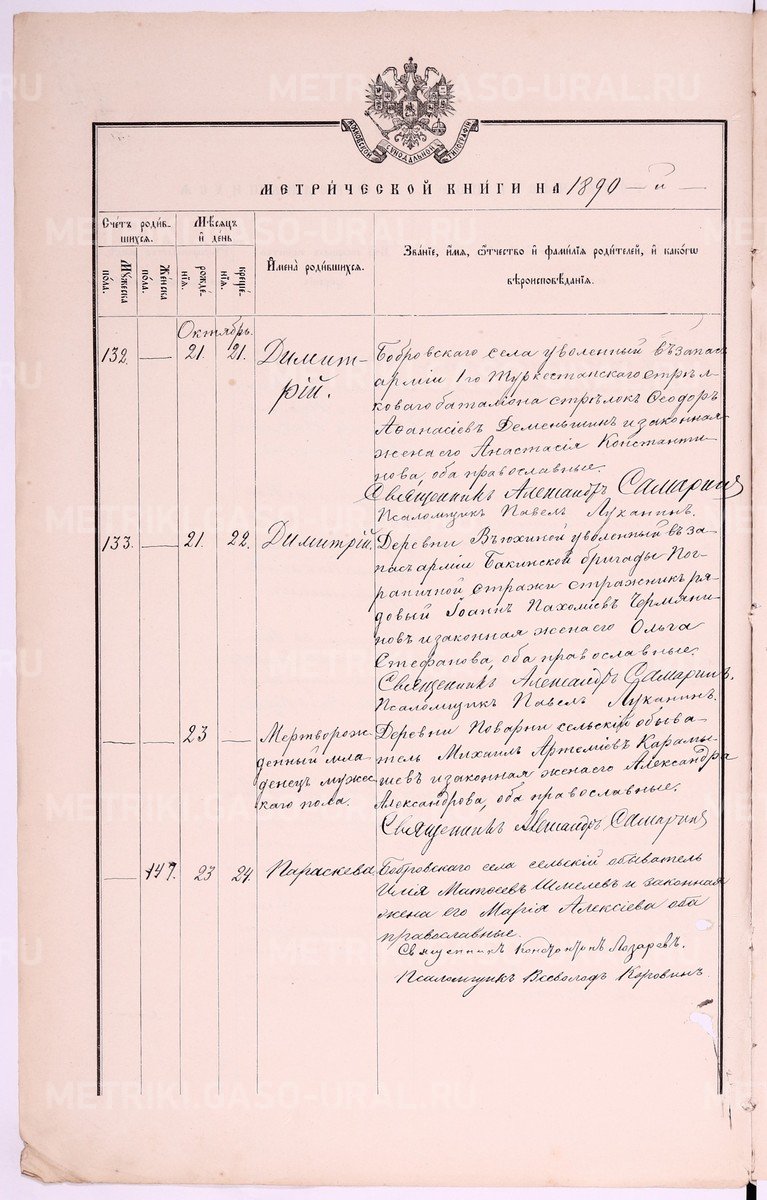 METRIKI.GASO-URAL.RU
МОСКОВСКОЙ СѴНОДАЛЬНОЙ ТИПОГРАФІИ
МЕТРИ́ЧЕСКОЙ КНИ́ГИ НА 1890 — й —
Сче́тъ роди́в-
шихсѧ.
Мѣ́сѧцъ
и҆ де́нь
Мꙋ́жеска
по́ла.
Же́нска
по́ла.
рожде́-
нїѧ.
креще́-
нїѧ.
И҆мена̀ роди́вшихсѧ.
Зва́нїе, и҆́мѧ, ѻ҆́тчество и҆ фами́лїѧ роди́телей, и҆ како́гѡ
вѣроисповѣ́данїѧ.
Октябрь.
132. — 21. 21. Димит-
рій.
Бобровскаго села уволенный въ запасъ
арміи 1го Туркестанскаго стрѣл-
коваго баталіона стрѣлокъ Ѳеодоръ
Аѳанасіевъ Деменьшинъ и законная
жена его Анастасія Константи-
нова, оба православные.
Священникъ Александръ Самаринъ
Псаломщикъ Павелъ Луканинъ.
133. — 21. 22. Димитрій. Деревни Вьюхиной уволенный въ за-
пасъ арміи Бакинской бригады Пог-
раничной стражи стражникъ ря-
довый Іоаннъ Пахоміевъ Чермяни-
новъ и законная жена его Ольга
Стефанова, оба православные.
Священникъ Александръ Самаринъ.
Псаломщикъ Павелъ Луканинъ.
— — 23 — Мертворож-
денный мла-
денецъ мужес-
каго пола.
Деревни Поварни сельскій обыва-
тель Михаилъ Артеміевъ Карамы-
шевъ и законная жена его Александра
Александрова, оба православные.
Священникъ Александръ Самаринъ
— 147. 23 24. Параскева Бобровскаго села сельскій обыватель
Илія Матѳеевъ Шмелевъ и законная
жена его Марія Алексіева оба
православные.
Священникъ Лазаревъ.
Псаломщикъ Всеволодъ Коровинъ.